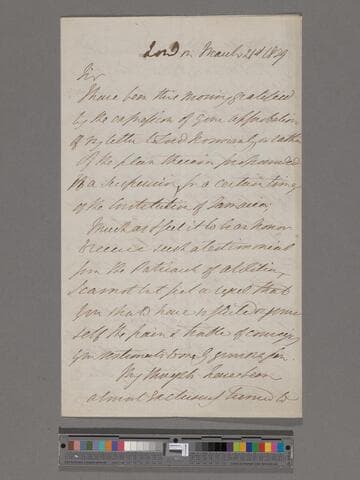 London March 21st 1839
Sir
I have been this morning gratified
by the expression of your approbation
of my letter to Lord Normanby or rather
of the plan therein propounded
for a suspension for a certain time
of the Constitution of Jamaica;
Much as I feel it to be an honor
to receive such a testimonial
from the Patriarch of abolition,
I cannot but feel regret that
you should have inflicted on your
self the pain & trouble of conveying
your estimate to me
My thoughts have been
almost exclusively turned to